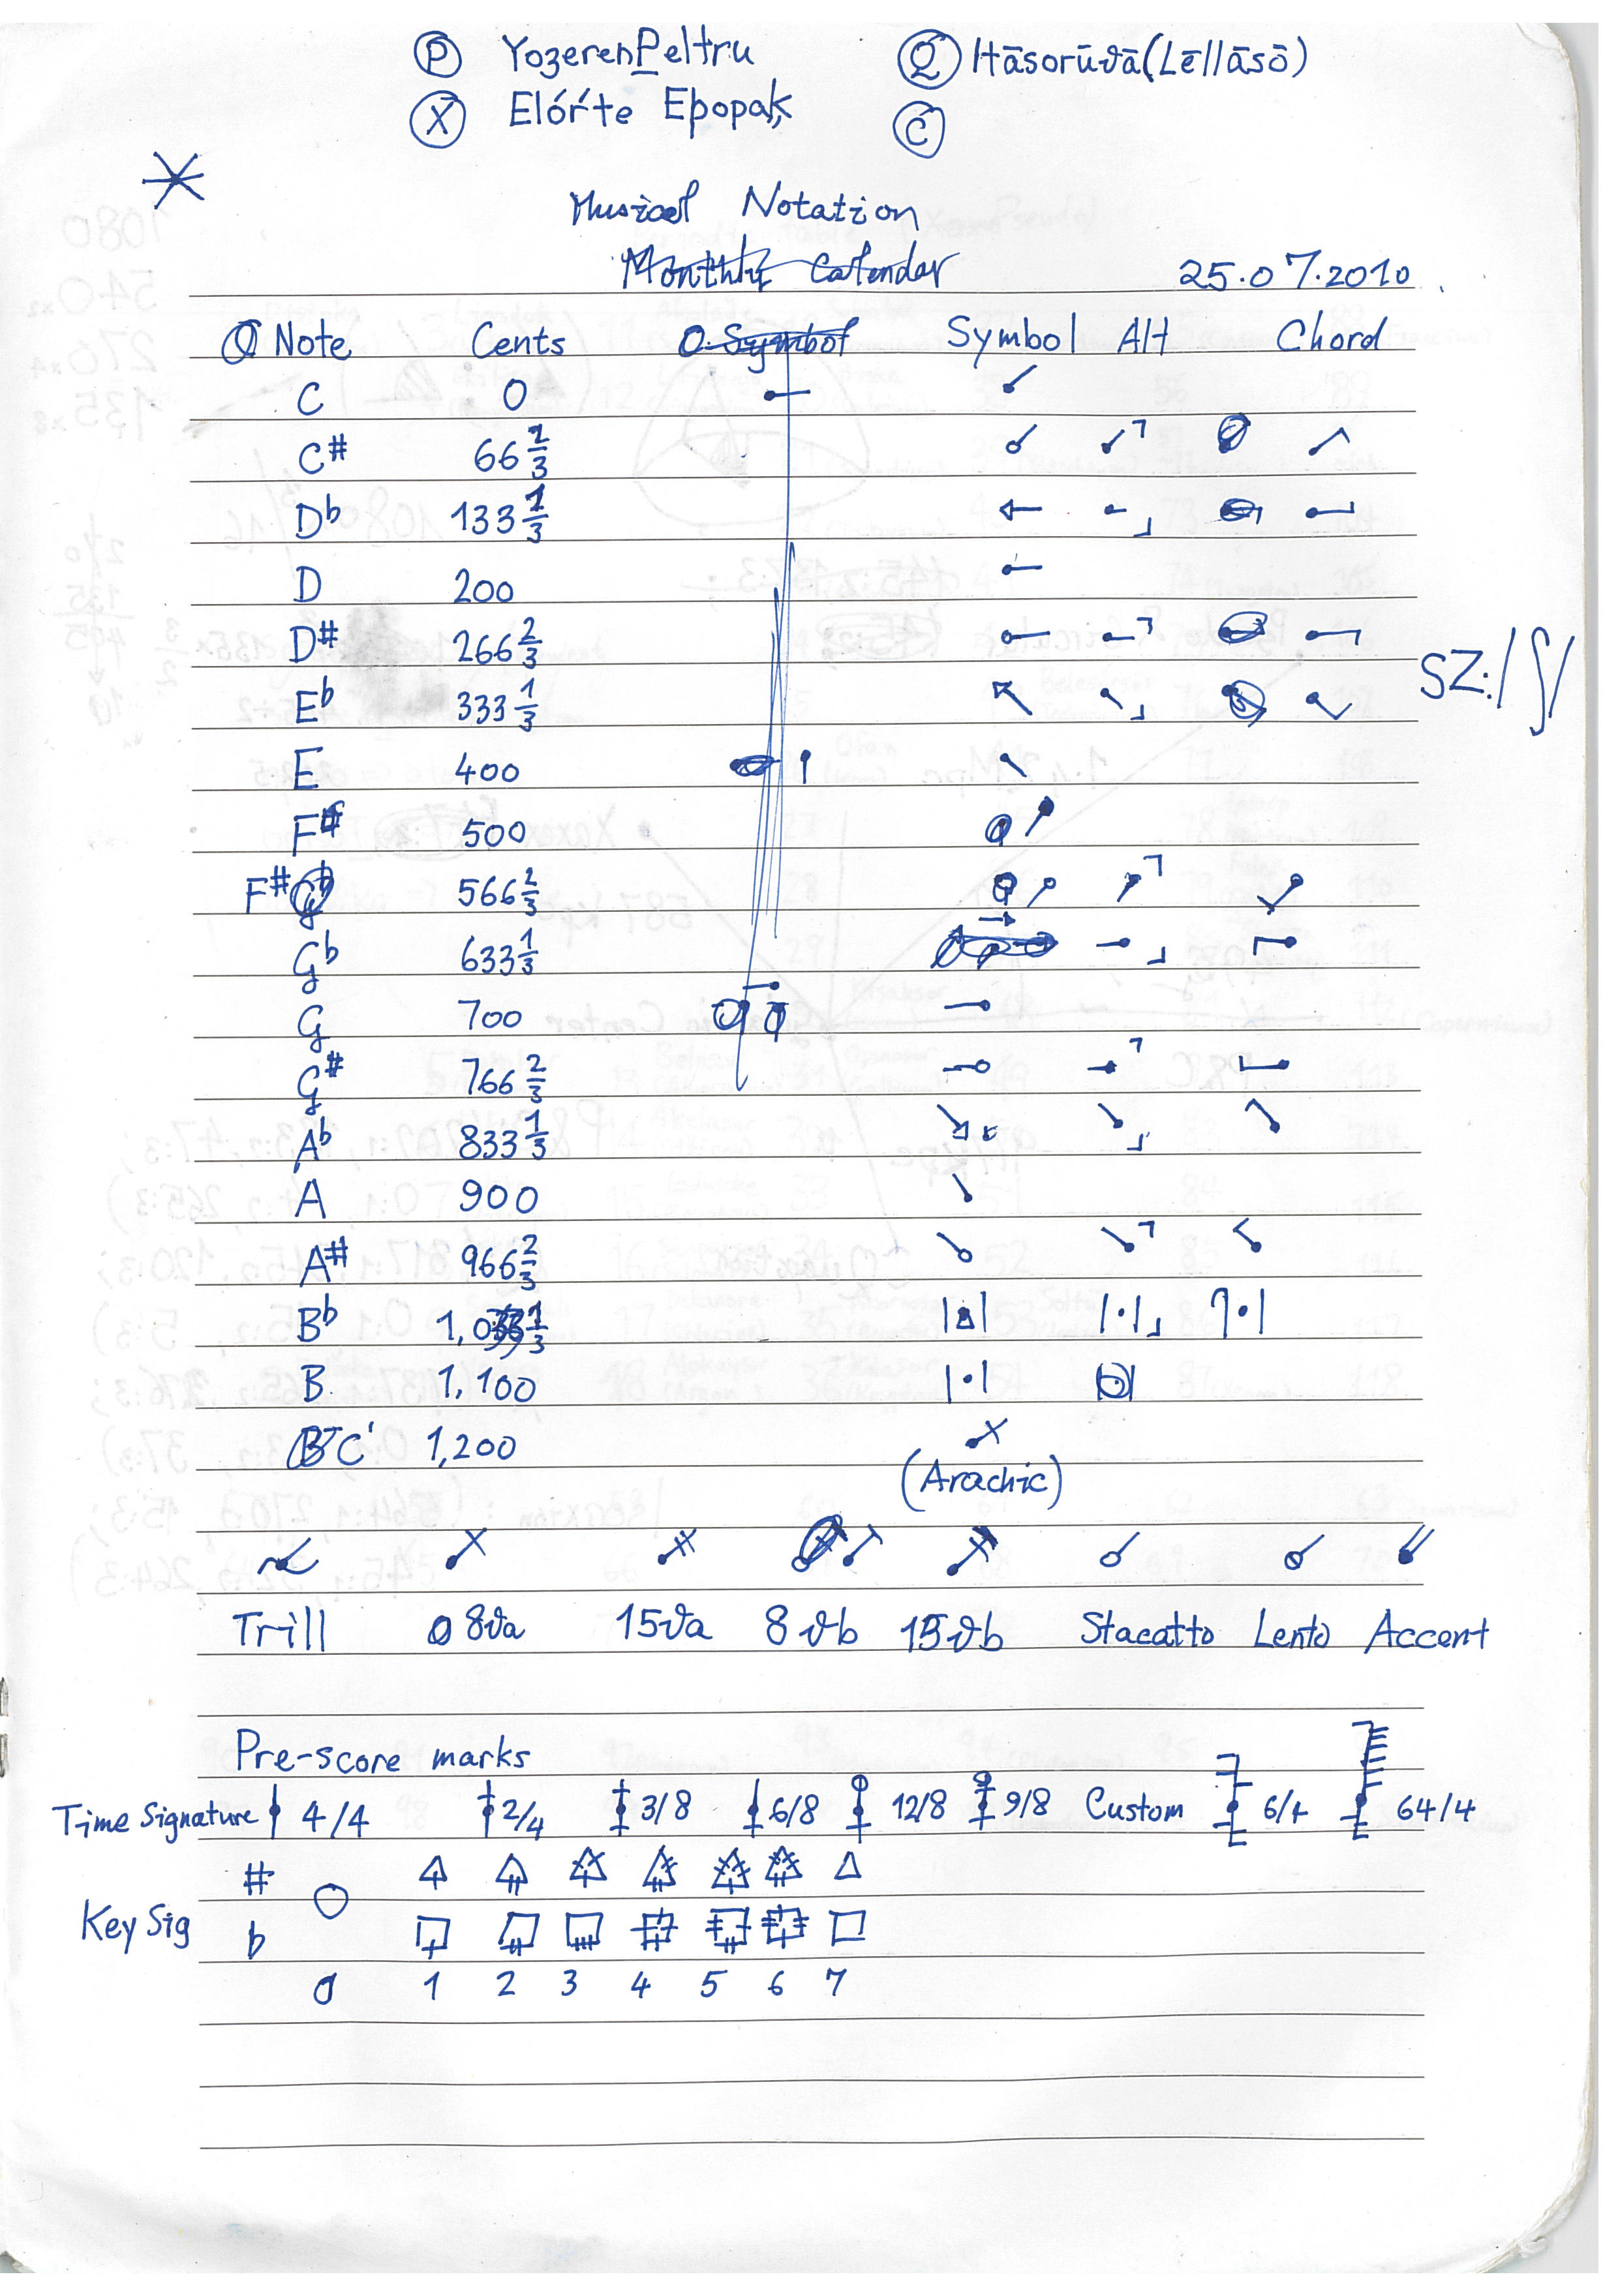 Ⓟ YozerenPeltru Ⓠ Hāsorūvā(Lēllāsō)
Ⓧ Elórte Eþopak Ⓒ
Musical Notation
Monthly Calendar 25.07.2010
Note Cents Symbol Symbol Alt Chord
C 0
C# 66 2/3
Db 133 1/3
D 200
D# 266 2/3
SZ:/ʃ/
Eb 333 1/3
E 400
F 500
F# 566 2/3
Gb 633 1/3
G 700
G# 766 2/3
Ab 833 1/3
A 900
A# 966 2/3
Bb 1,033 1/3
B 1,100
C' 1,200
(Arachic)
Trill 8va 15va 8vb 15vb Stacatto Lento Accent
Pre-score marks
Time Signature 4/4 2/4 3/8 6/8 12/8 9/8 Custom 6/4 64/4
#
Key Sig
b
0 1 2 3 4 5 6 7